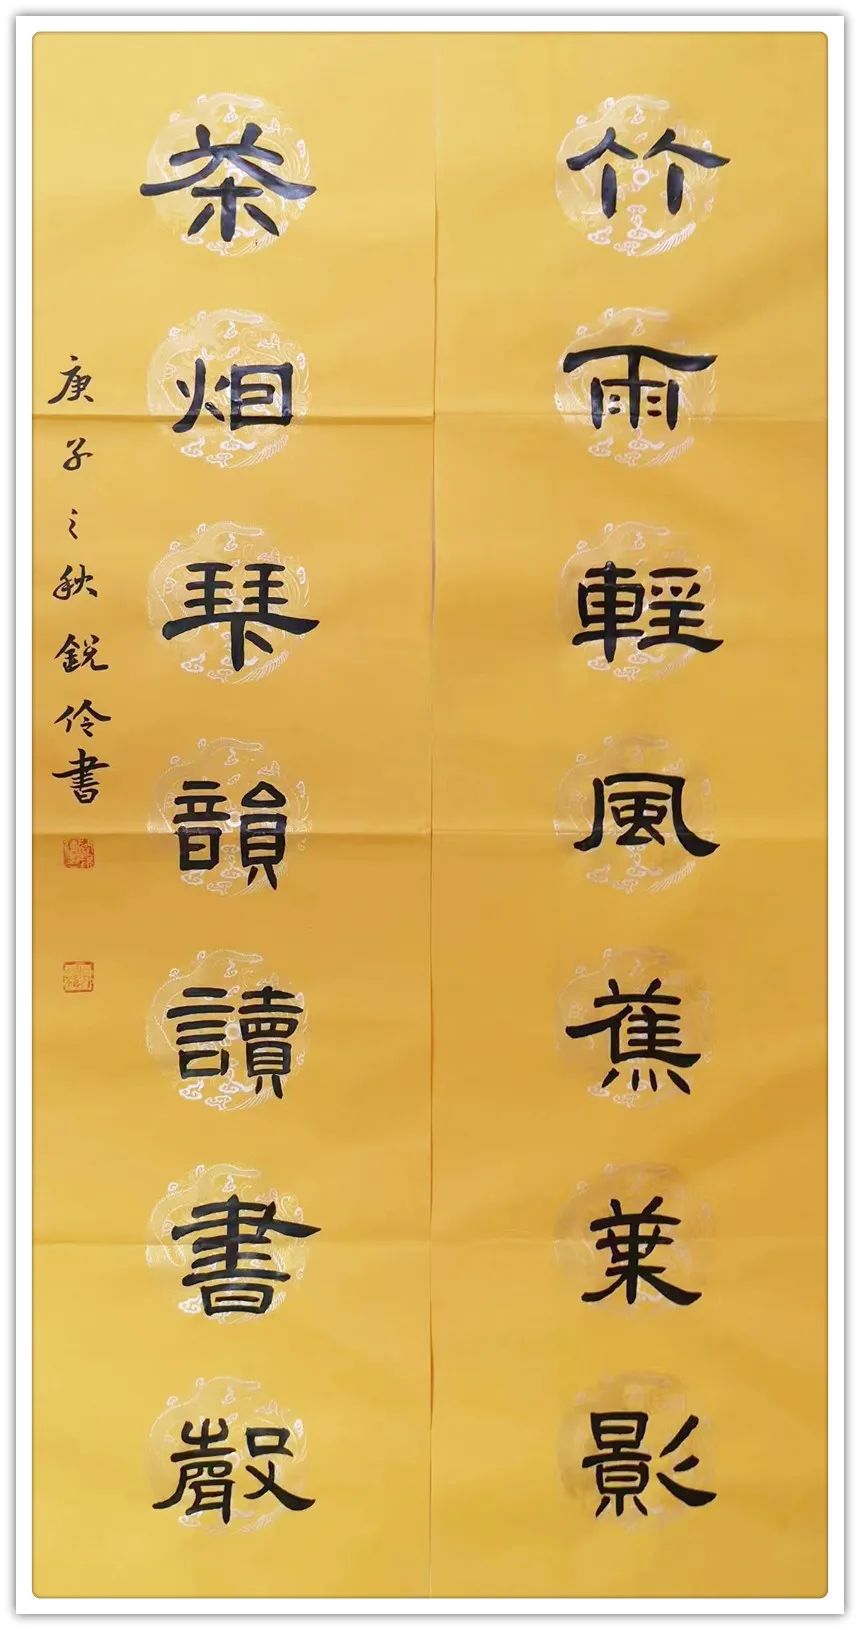 竹雨輕風蕉葉影
茶烟琴韻讀書聲
庚子之秋鋭伶書